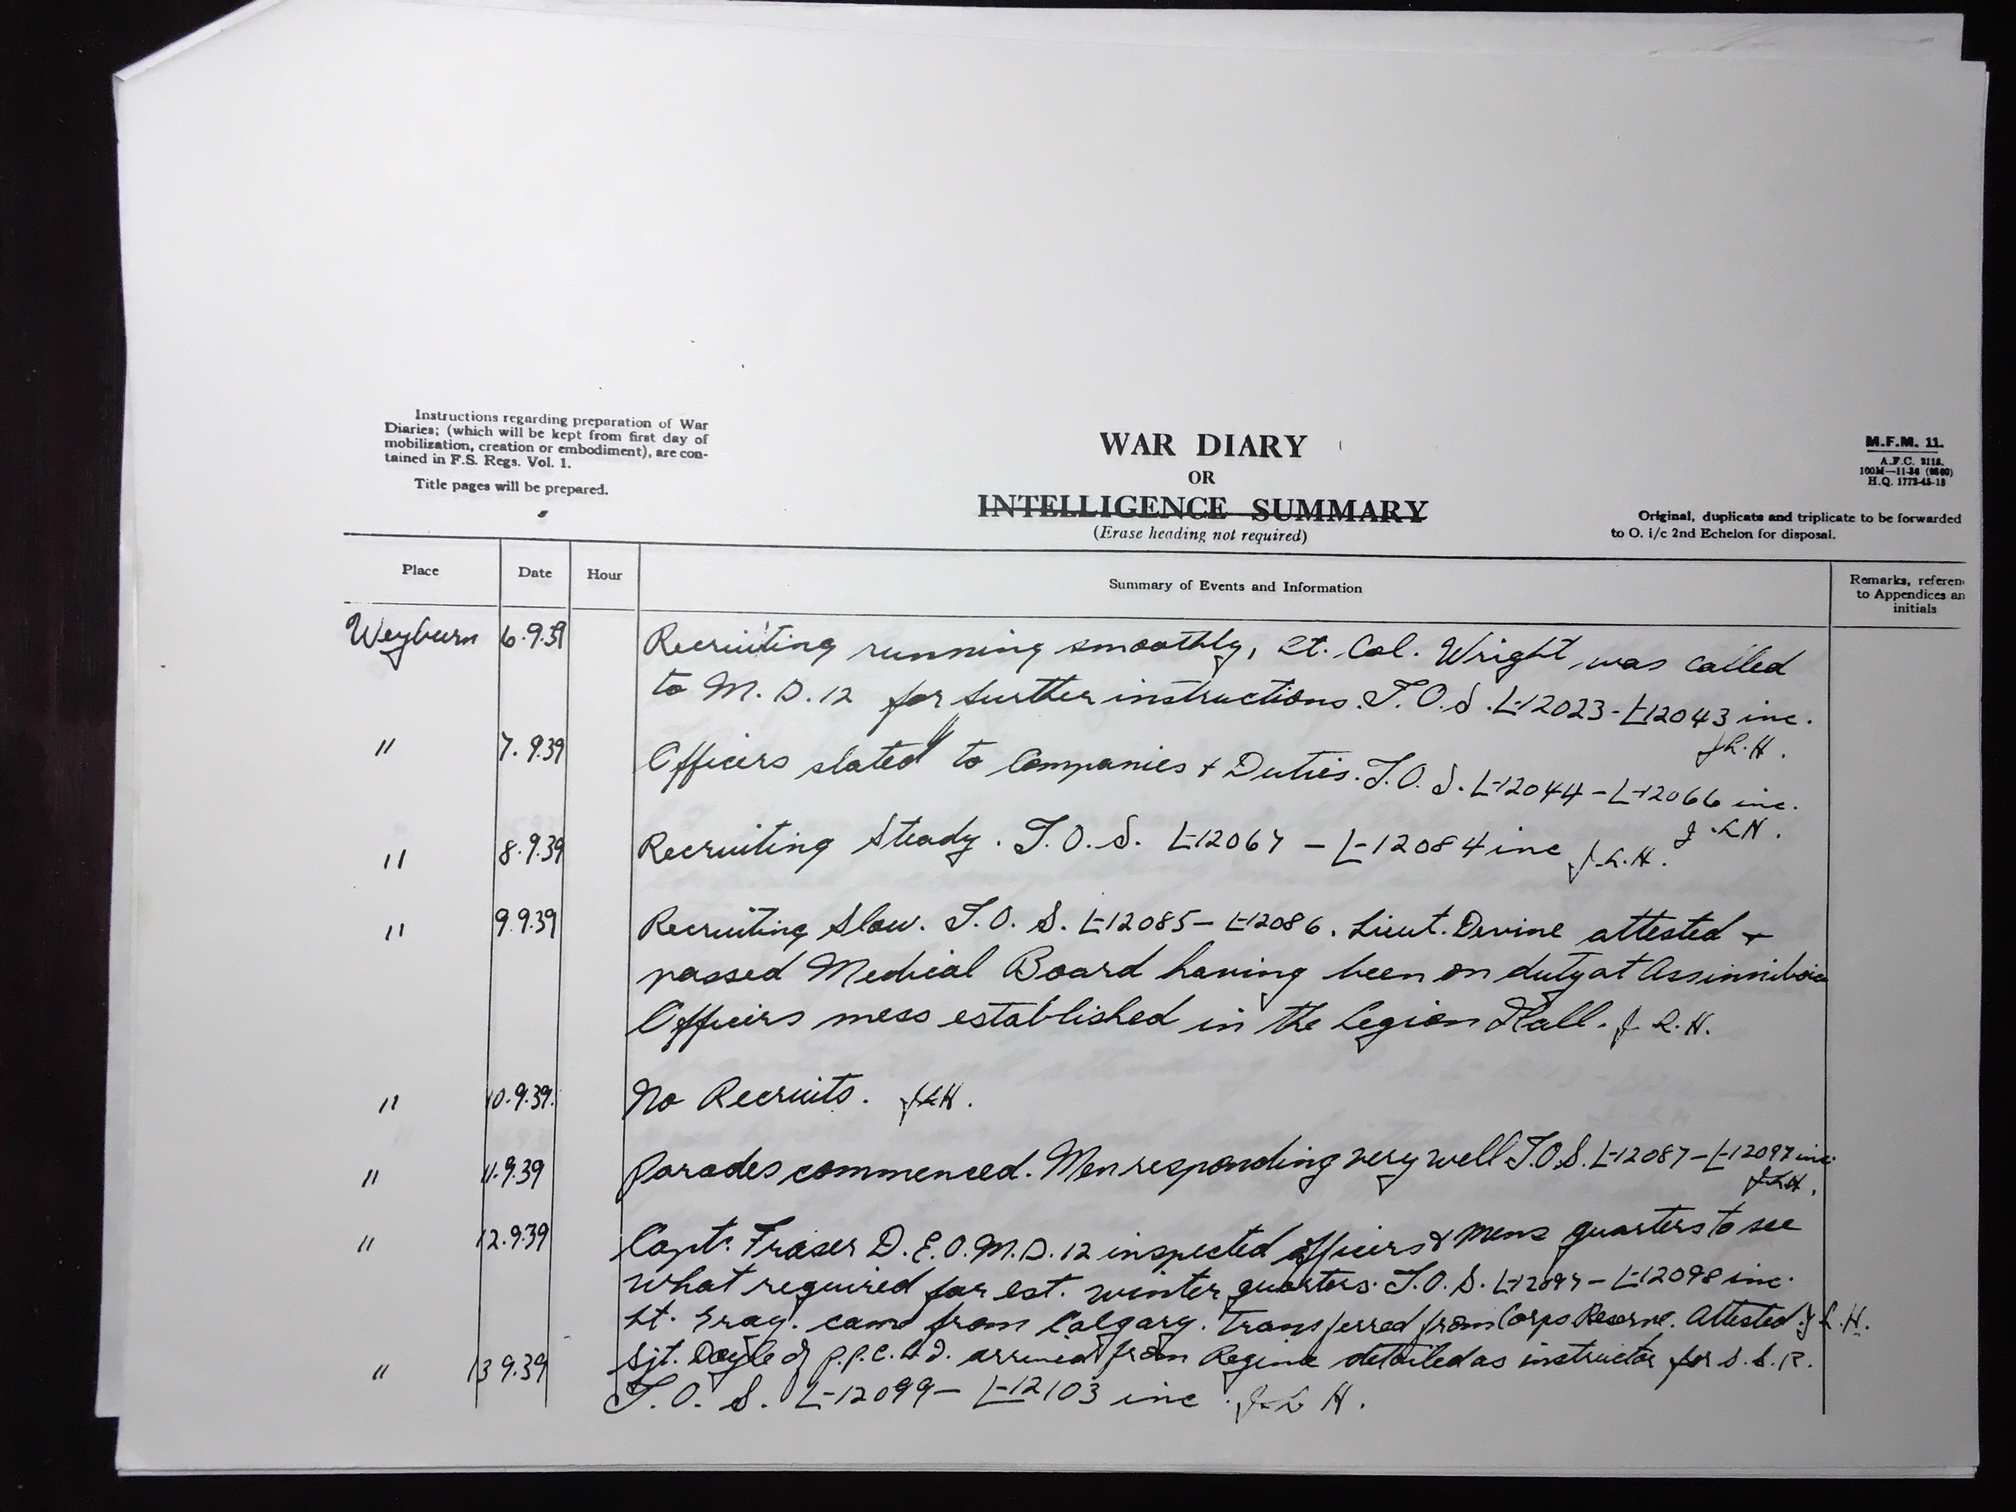 Instructions regarding preparation of War
Diaries; (which will be kept from first day of
mobilization, creation or embodiment), are con-
tained in F.S. Regs. Vol. 1.
Title pages will be prepared.
WAR DIARY
OR
INTELLIGENCE SUMMARY
(Erase heading not required)
M.F.M. 11.
A.F.C. 2118.
100M—11-36
H.Q. 1772-45-18
Original, duplicate and triplicate to be forwarded
to O. i/c 2nd Echelon for disposal.
Place Date Hour Summary of Events and Information Remarks, referen
to Appendices an
initials
Weyburn 6.9.39 Recruiting running smoothly, Lt. Col. Wright was called
to M.D.12 for further instructions. T.O.S. L-12023-L12043 inc.
J.L.H.
" 7.9.39 Officers slated to Companies + Duties. T.O.S. L-12044-L-12066 inc.
J.L.H.
" 8.9.39 Recruiting Steady. T.O.S. L-12067 - L-12084 inc J.L.H.
" 9.9.39 Recruiting Slow. T.O.S. L-12085- L-12086. Lieut. Devine attested +
passed Medical Board having been on duty at Assinniboia
Officers mess established in the Legion Hall. J.L.H.
" 10.9.39. No Recruits. JLH.
" 11.9.39 Parades commenced. Men responding very well T.O.S. L-12087-L-12097 inc.
JLH.
" 12.9.39 Capt. Fraser D.E.O. M.D.12 inspected officers & mens quarters to see
what required for est. winter quarters. T.O.S. - L-12098 inc.
Lt. Gray. came from Calgary. Transferred from Corps Reserve. Attested. J.L.H.
" 13 9.39 Sjt. Doyle of P.P.C.L.I. arrived from Regina detailed as instructor for S.S.R.
T.O.S. L-12099- L-12103 inc. J.L.H.